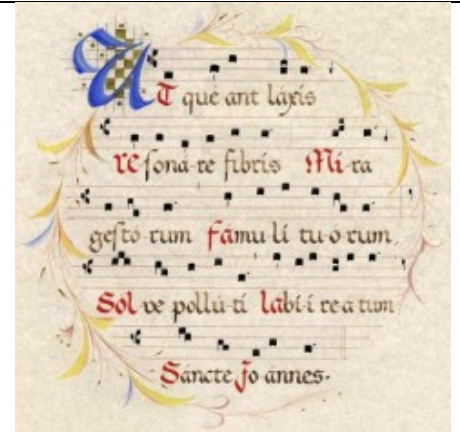 UT que ant láxis
re soná-re fibris Mi-ra
gesto-rum fámu lí tu-o rum
Sol-ve pollú-tí lábí-í re a tum
Sáncte Jo ánnes.